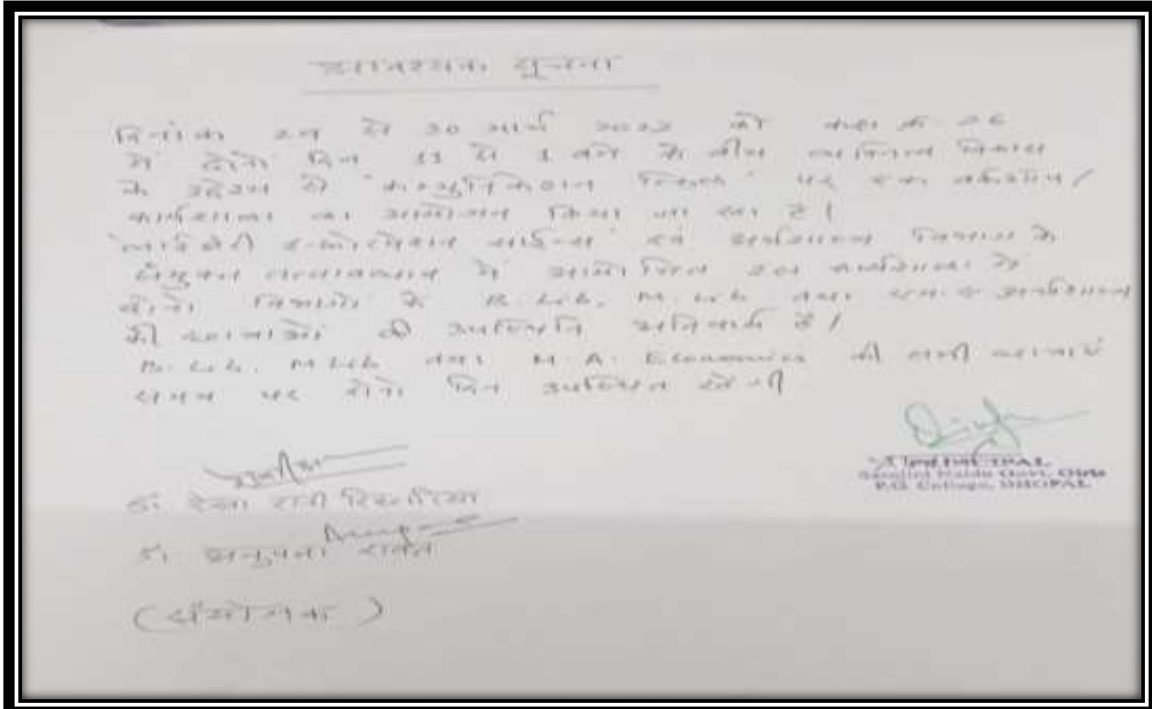 आवश्यक सूचना
दिनांक से 30 मार्च 2022 को कक्ष क्र. 26
में दोनों दिन 11 से 1 बजे के बीच व्यक्तित्व विकास
के उद्देश्य से "कम्युनिकेशन स्किल" पर एक वर्कशॉप/
कार्यशाला का आयोजन किया जा रहा है।
एवं अर्थशास्त्र विभाग के
संयुक्त तत्वावधान में आयोजित इस कार्यशाला में
दोनों विभागों के B. Lib, M. Lib तथा एम.ए अर्थशास्त्र
की छात्राओं की उपस्थिति अनिवार्य है।
B. Lib. M. Lib तथा M. A. Economics की सभी छात्रायें
समय पर दोनों दिन उपस्थित रहेंगी
PRINCIPAL
Sarojini Naidu Govt. Girls
P.G. College, BHOPAL
डॉ रेखा रानी
डॉ अनुपमा रावत
(संयोजक)